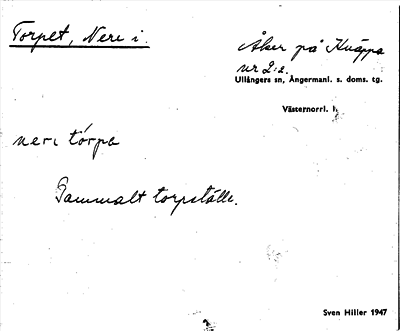 Torpet, Nere i.
Åker på Knäppa
nr 2:2.
Ullångers sn, Ångermanl. s. doms. tg.
Västernorrl. l.
neri tórpa
Gammalt torpställe.
Sven Hiller 1947